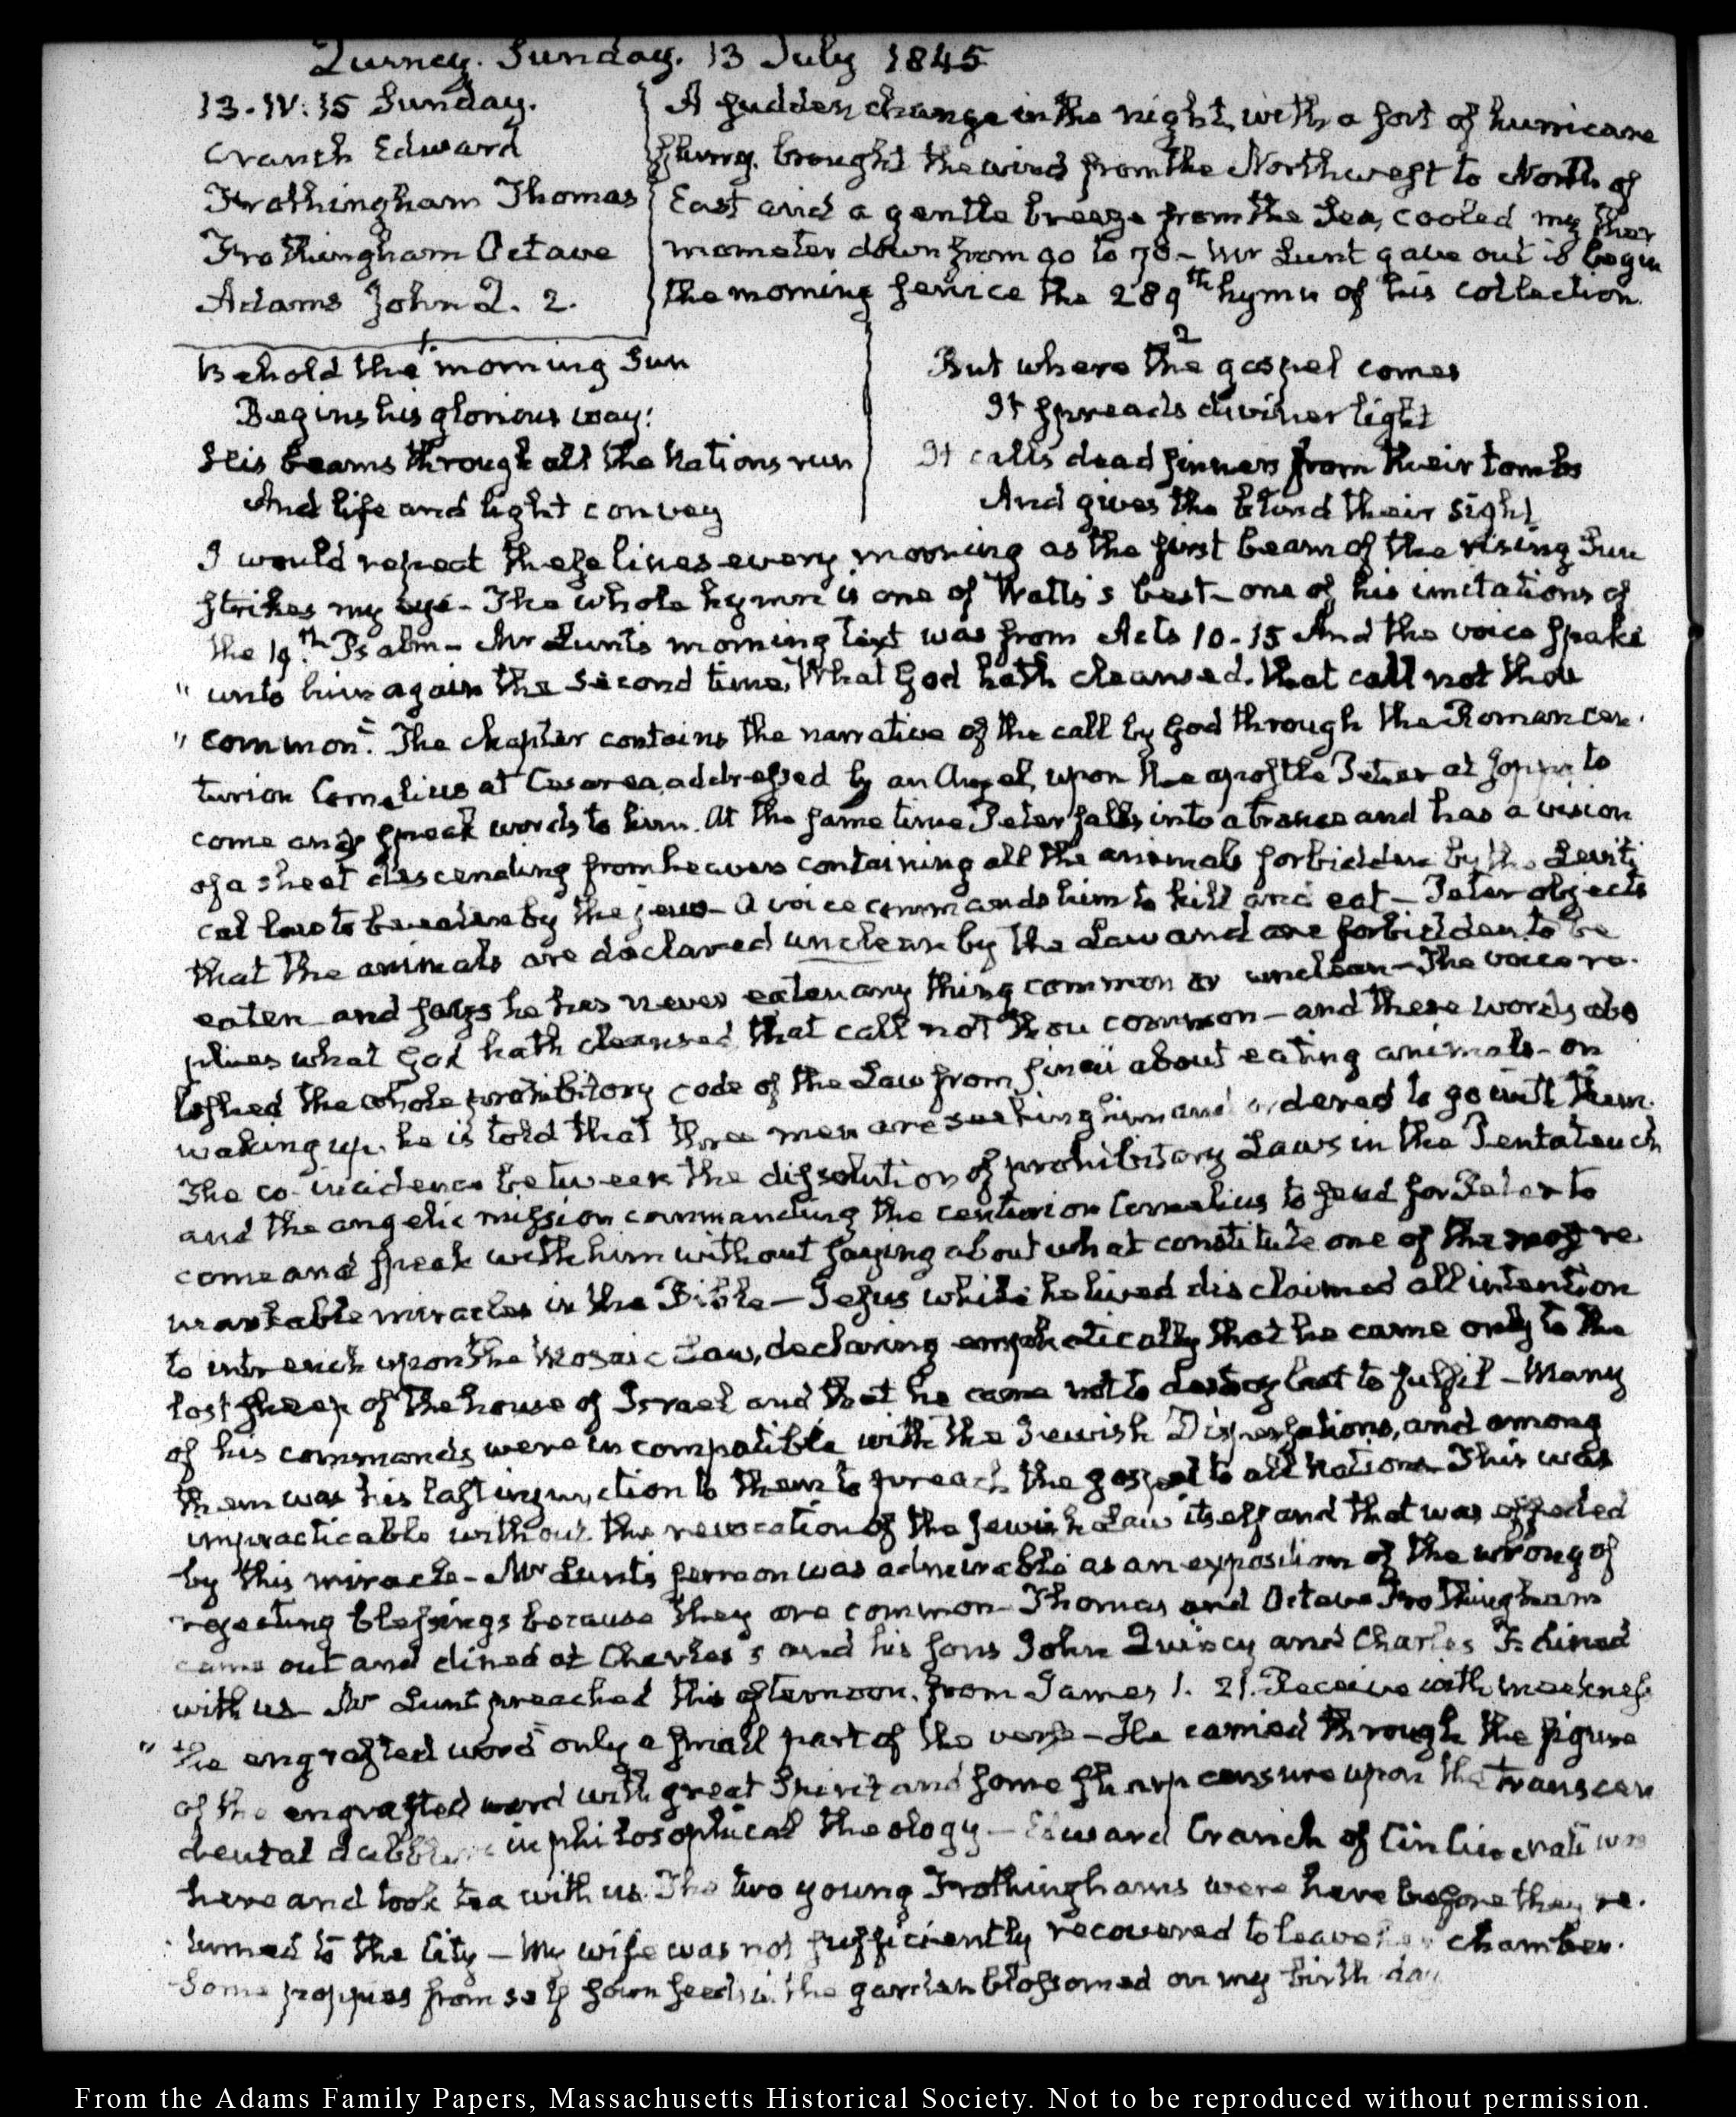 Quincy. Sunday. 13 July 1845
13. IV:15 Sunday.
Cranch Edward
Frothingham Thomas
Frothingham Octave
Adams John Q. 2.
A sudden change in the night, with a sort of hurricane
brought the wind from the Northwest to North of
East and a gentle breeze from the Sea, cooled my ther
mometer down from 90 to 78 - Mr Lunt gave out to begin
the morning service the 289th hymn of his collection.
1.
Behold the morning Sun
Begins his glorious way:
His beams through all the Nations run
And life and light convey
2
But where the gospel comes
It spreads diviner light
It calls dead sinners from their tombs
And gives the blind their sight
I would repeat these lines every morning as the first beam of the rising Sun
strikes my eye - The whole hymn is one of Watts's best - one of his imitations of
the 19th Psalm - Mr Lunt's morning text was from Acts 10-15 And the voice spake
" unto him again the second time, What God hath cleansed, that call not thou
" common". The chapter contains the narrative of the call by God through the Roman Cen-
turion Cornelius at Cesarea, addressed by an Angel, upon the apostle Peter at Joppa to
come and speak words to him. At the same time Peter falls into a trance and has a vision
of a sheet descending from heaven containing all the animals forbidden by the Leviti
cal law to be eaten by the jews - A voice commands him to kill and eat - Peter objects
that the animals are declared unclean by the Law and are forbidden to be
eaten - and says he has never eaten any thing common or unclean - The voice re-
plies what God hath cleansed that call not thou common - and these words abo
lished the whole prohibitory code of the Law from Sinai about eating animals - on
waking up he is told that three men are seeking him and ordered to go with them.
The co-incidence between the dissolution of prohibitory Laws in the Pentateuch
and the angelic mission commanding the centurion Cornelius to send for Peter to
come and speak with him without saying about what constitute one of the most re-
markable miracles in the Bible - Jesus while he lived disclaimed all intention
to intrench upon the Mosaic Law, declaring emphatically that he came only to the
lost sheep of the house of Israel and that he came not to destroy but to fulfil - Many
of his commands were incompatible with the Jewish Dispensations, and among
them was his last injunction to them to preach the gospel to all Nations - This was
impracticable without the revocation of the Jewish Law itself and that was effected
by this miracle - Mr Lunt's sermon was admirable as an exposition of the wrong of
rejecting blessings because they are common - Thomas and Octave Frothingham
came out and dined at Charles's and his sons John Quincy and Charles F. dined
with us - Mr Lunt preached this afternoon. from James 1. 21. Receive with meekness
" the engrafted word" only a small part of the verse - He carried through the figure
of the engrafted word with great Spirit and some sharp censure upon the transcen
dental in philosophical theology - Edward Cranch of Cincinnati was
here and took tea with us. The two young Frothinghams were here before they re-
turned to the City - My wife was not sufficiently recovered to leave her chamber.
Some poppies from self sown seeds in the garden blossomed on my birth day
From the Adams Family Papers, Massachusetts Historical Society. Not to be reproduced without permission.